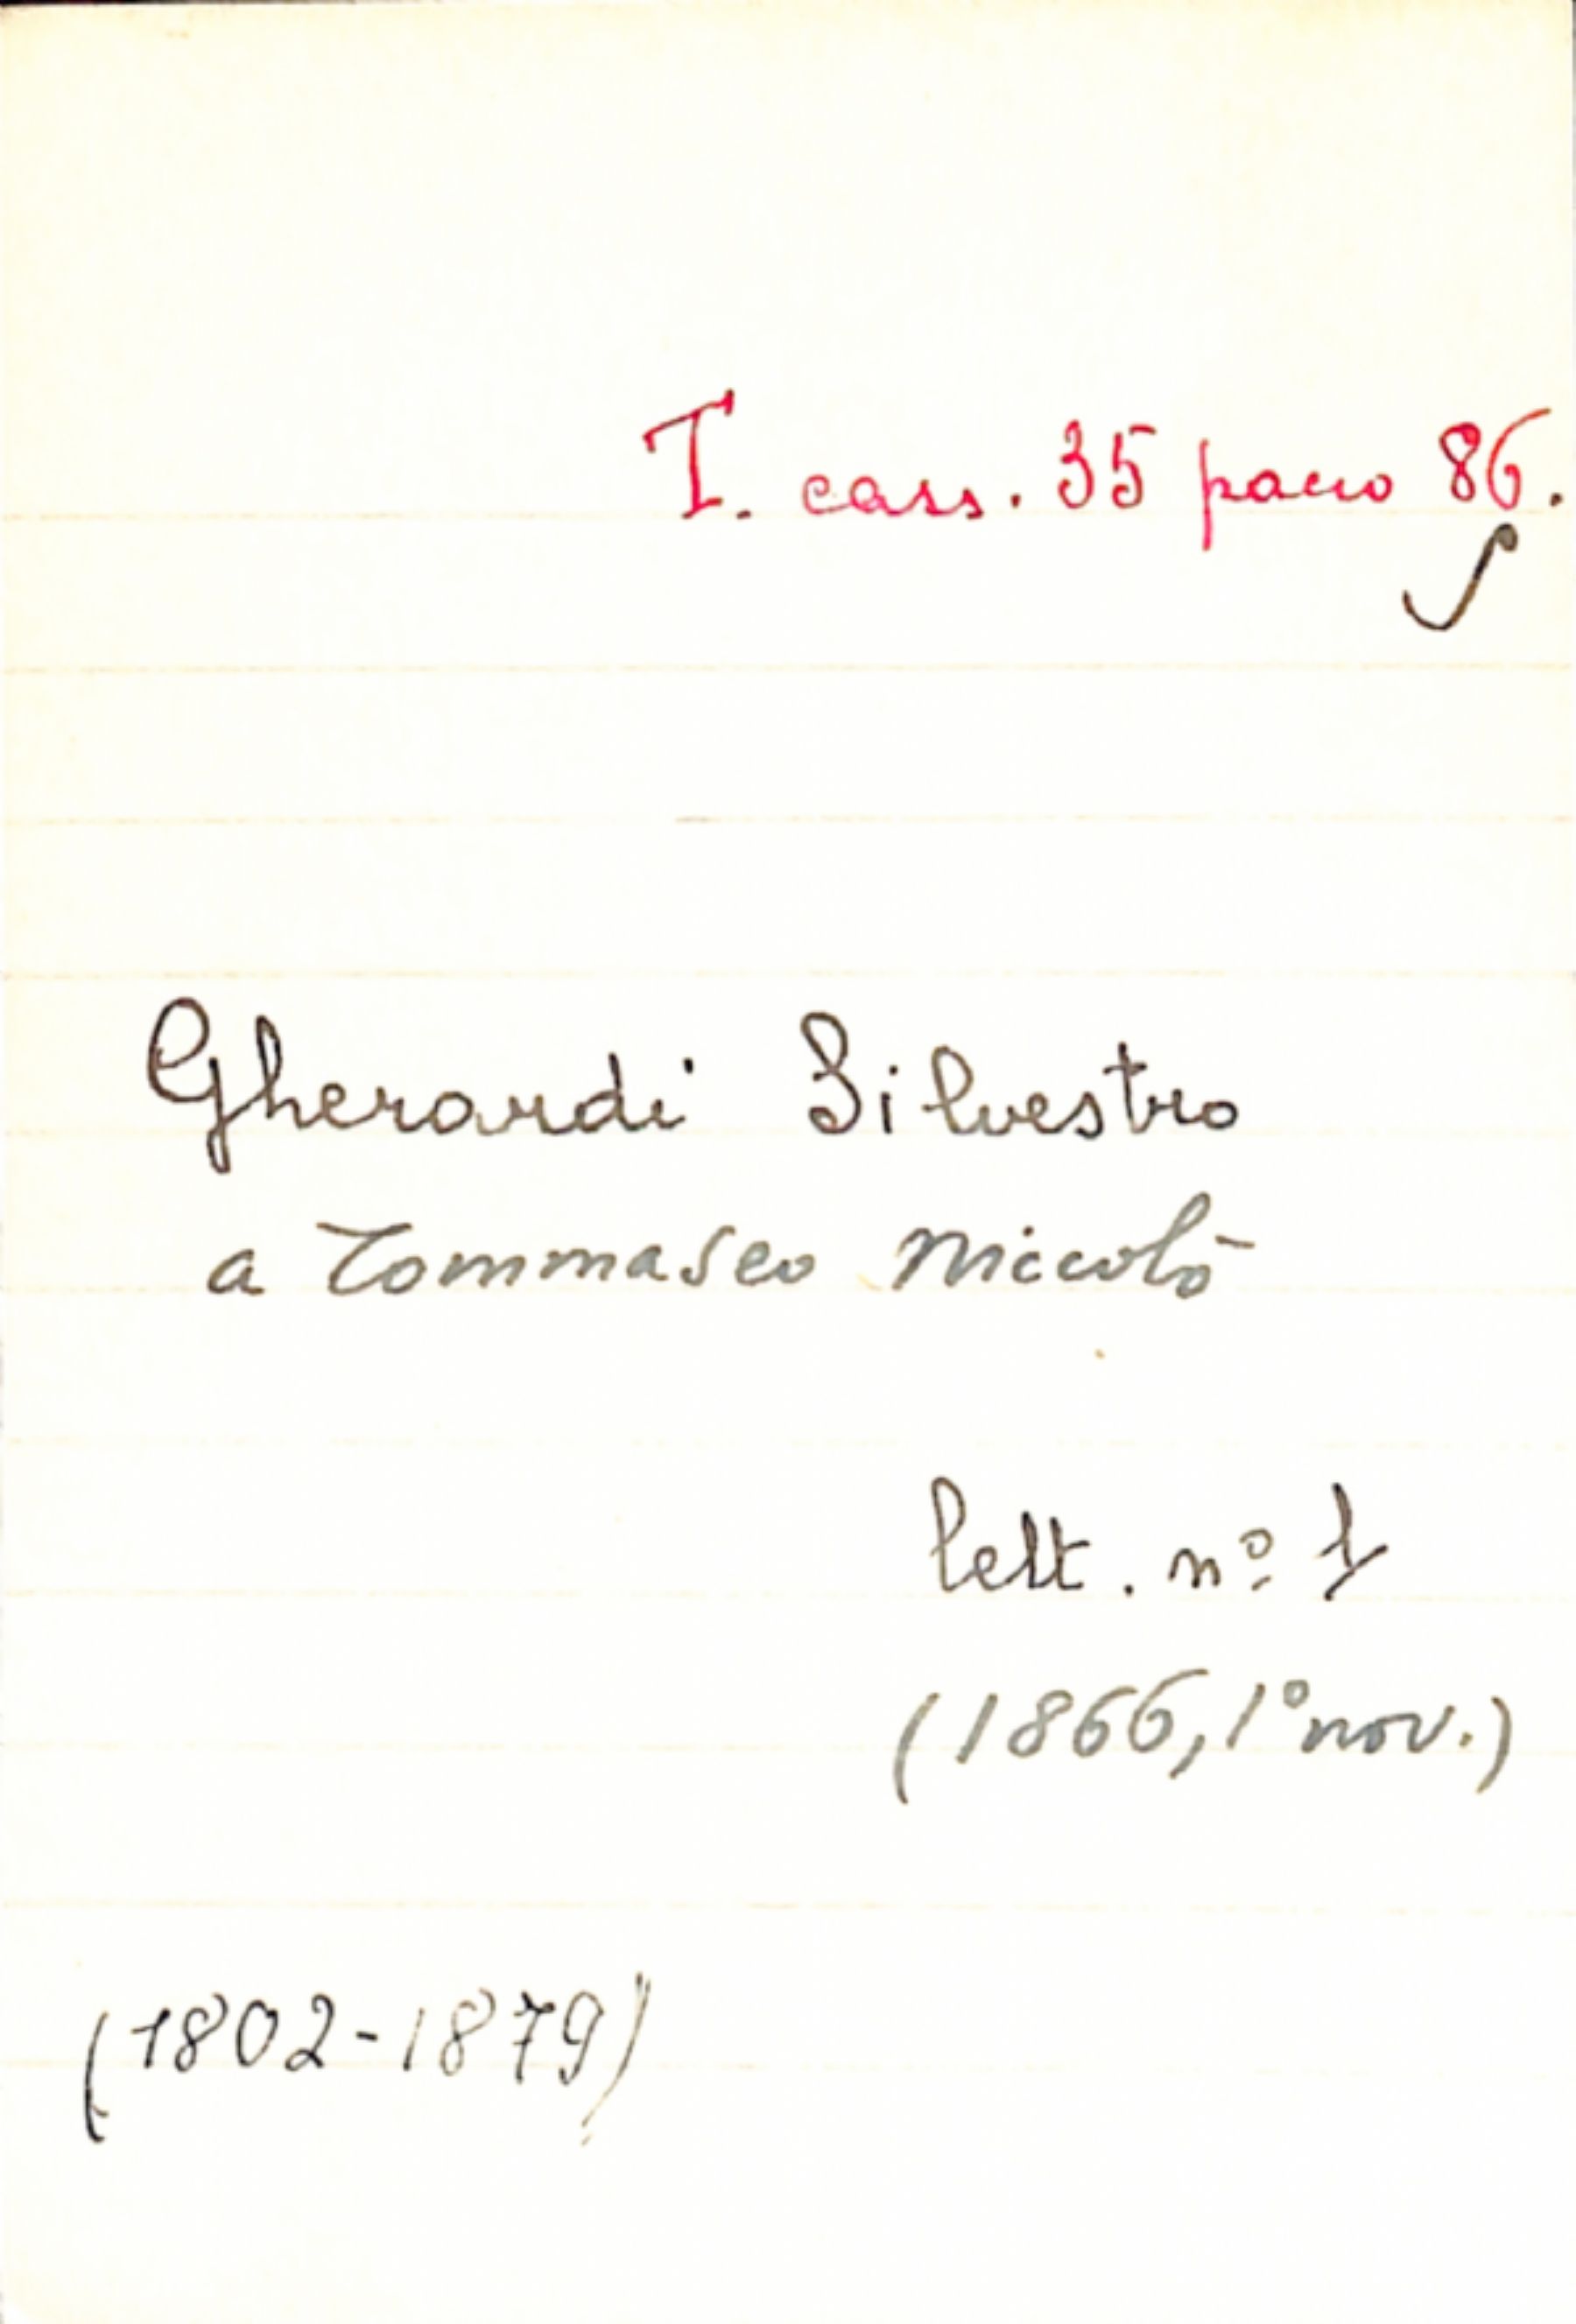 T. cass. 35 pacco 86.
Gherardi Silvestro
a Tommaseo Niccolò
lett. nº 1
(1866, 1º nov.)
(1802-1879)